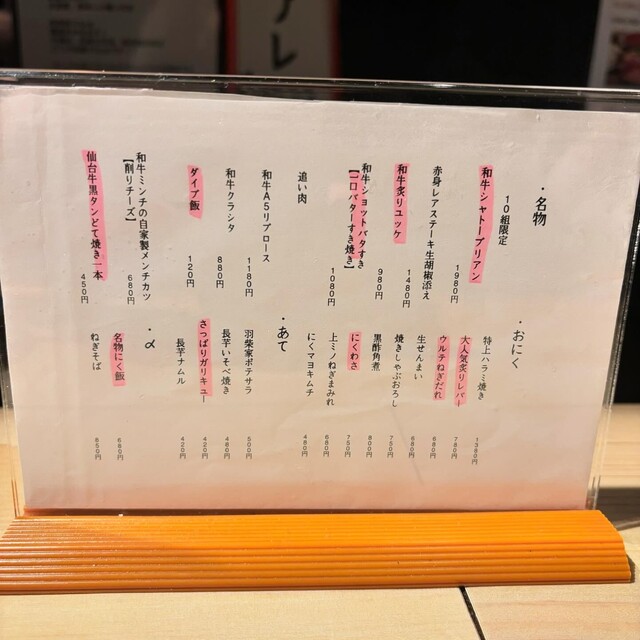 ・名物
10組限定
和牛シャトーブリアン
1980円
赤身レアステーキ生胡椒添え
1480円
和牛炙りユッケ
980円
和牛ショットバタすき
【一口バターすき焼き】
1080円
追い肉
和牛A5リブロース
1180円
和牛クラシタ
880円
ダイブ飯
120円
和牛ミンチの自家製メンチカツ
【削りチーズ】
680円
仙台牛黒タンどて焼き一本
450円
・おにく
特上ハラミ焼き
1380円
大人気炙りレバー
780円
ウルテねぎだれ
680円
生せんまい
680円
焼きしゃぶおろし
750円
黒酢角煮
800円
にくわさ
750円
上ミノねぎまみれ
680円
にくマヨキムチ
480円
・あて
羽柴家ポテサラ
500円
長芋いそべ焼き
480円
さっぱりガリキュー
420円
長芋ナムル
420円
・〆
名物にく飯
680円
ねぎそば
650円
アレ